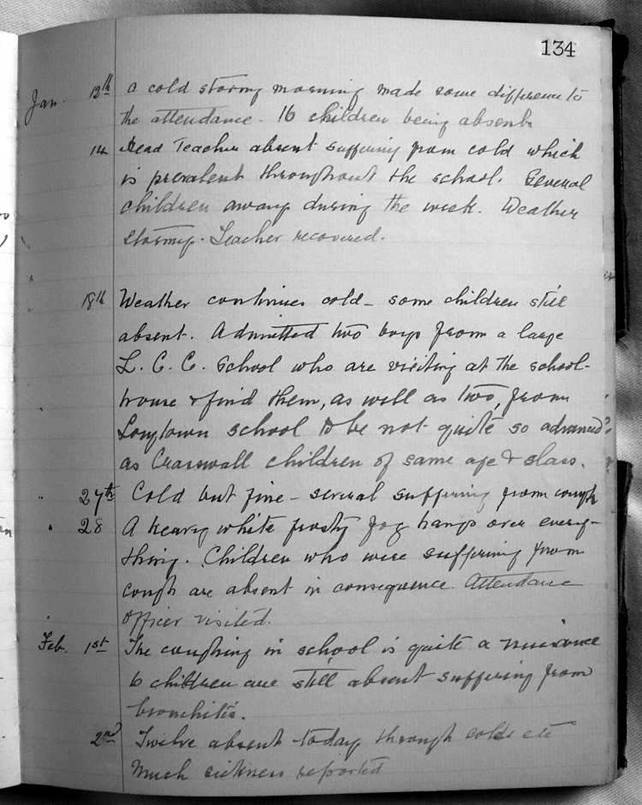 134
Jan. 13th a cold stormy morning made some difference to
the attendance - 16 children being absent.
14 Head Teacher absent suffering from cold which
is prevalent throughout the school. Several
children away during the week. Weather
stormy. Teacher recovered.
18th Weather continues cold - some children still
absent. Admitted two boys from a large
L.C.C. School who are visiting at the school-
house & find them, as well as two, from
Longtown school to be not quite so advanced
as Craswall children of same age & class.
27th Cold but fine - several suffering from cough
28 A heavy white frosty fog hangs over every-
thing. Children who were suffering from
cough are absent in consequence. Attendance
officer visited.
Feb. 1st The coughing in school is quite a nuisance
6 children are still absent suffering from
bronchitis.
2nd Twelve absent today through colds etc
Much sickness reported